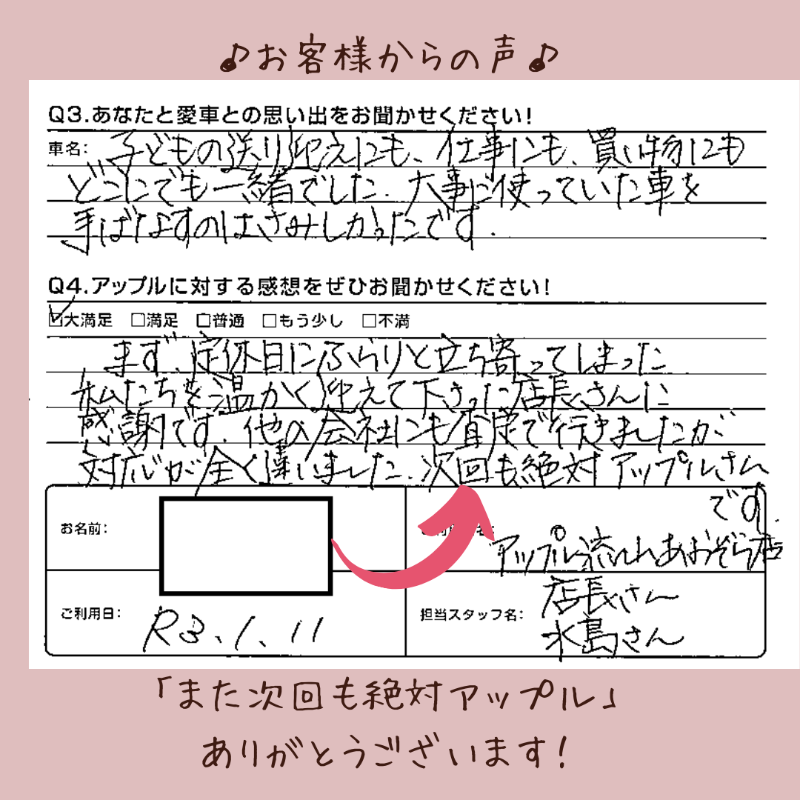 ♪お客様からの声♪
Q3.あなたと愛車との思い出をお聞かせください!
車名:
子どもの送り迎えにも、仕事にも、買い物にも
どこにでも一緒でした。大事に使っていた車を
手ばなすのはさみしかったです。
Q4.アップルに対する感想をぜひお聞かせください!
☑大満足 □満足 □普通 □もう少し □不満
まず、定休日にふらりと立ち寄ってしまった
私たちを温かく迎えて下さった店長さんに
感謝です。他の会社にも査定で行きましたが
対応が全く違いました。次回も絶対アップルさん
です。
お名前:
アップル流れあおぞら店
ご利用日:
R3.1.11
担当スタッフ名:
店長さん
水島さん
「また次回も絶対アップル」
ありがとうございます!